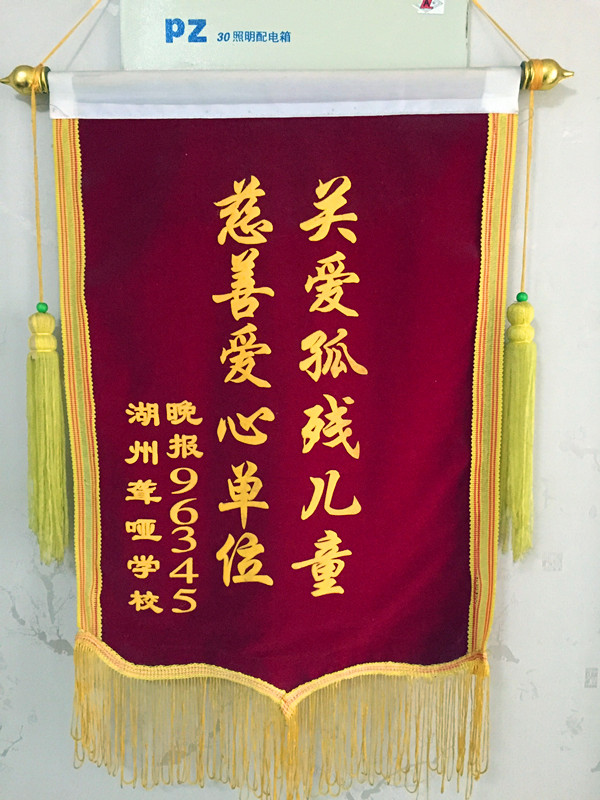 PZ 30照明配电箱
关爱孤残儿童
慈善爱心单位
晚报96345
湖州聋哑学校